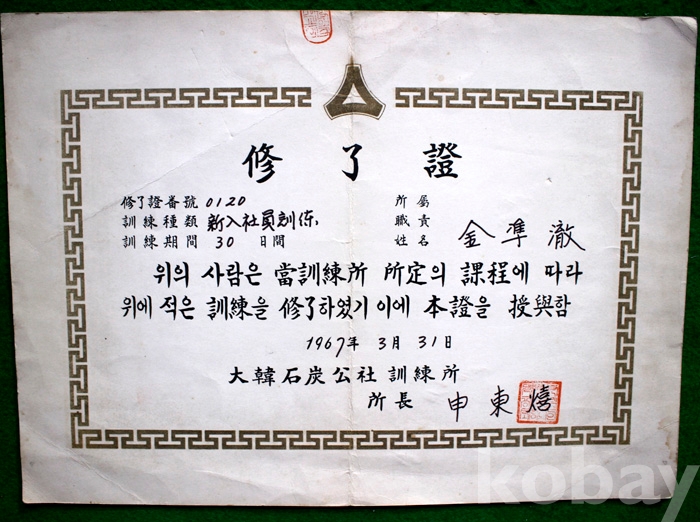 修了證
修了證番號 0120
訓練種類 新入社員訓练
訓練期間 30 日間
所屬
職責
姓名 金準澈
위의 사람은 當訓練所 所定의 課程에 따라
위에 적은 訓練을 修了하였기 이에 本證을 授與함
1967年 3月 31日
大韓石炭公社 訓練所
所長 申東熺
kobay